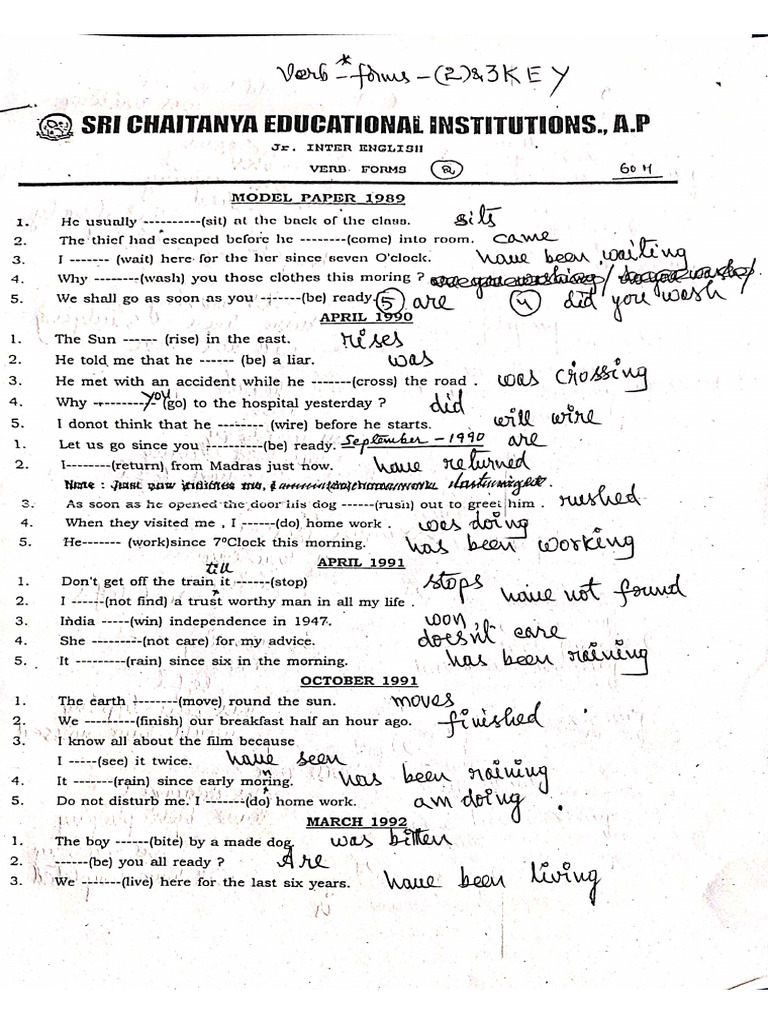 Verb - forms - (2) & 3 KEY
SRI CHAITANYA EDUCATIONAL INSTITUTIONS., A.P
Jr. INTER ENGLISH
VERB FORMS (2)
MODEL PAPER 1989
1. He usually ----------(sit) at the back of the class. sits
2. The thief had escaped before he --------(come) into room. came
3. I ------- (wait) here for the her since seven O'clock. have been waiting
4. Why --------(wash) you those clothes this moring ?
5. We shall go as soon as you -------(be) ready. (5) are (4) did you wash
APRIL 1990
1. The Sun ------ (rise) in the east. rises
2. He told me that he ------ (be) a liar. was
3. He met with an accident while he -------(cross) the road . was crossing
4. Why ---------- you (go) to the hospital yesterday ? did
5. I donot think that he -------- (wire) before he starts. will wire
1. Let us go since you ----------(be) ready. September - 1990 are
2. I--------(return) from Madras just now. have returned
3. As soon as he opened the door his dog ------(rush) out to greet him . rushed
4. When they visited me , I ------(do) home work . was doing
5. He------- (work)since 7°Clock this morning. has been working
APRIL 1991
1. Don't get off the train till it ------(stop) stops
2. I ------(not find) a trust worthy man in all my life . have not found
3. India -----(win) independence in 1947. won
4. She ---------(not care) for my advice. doesn't care
5. It ----------(rain) since six in the morning. has been raining
OCTOBER 1991
1. The earth --------(move) round the sun. moves
2. We ---------(finish) our breakfast half an hour ago. finished
3. I know all about the film because
I -----(see) it twice. have seen
4. It -------(rain) since early morning. has been raining
5. Do not disturb me. I -------(do) home work. am doing
MARCH 1992
1. The boy ------(bite) by a made dog. was bitten
2. ------(be) you all ready ? Are
3. We -------(live) here for the last six years. have been living